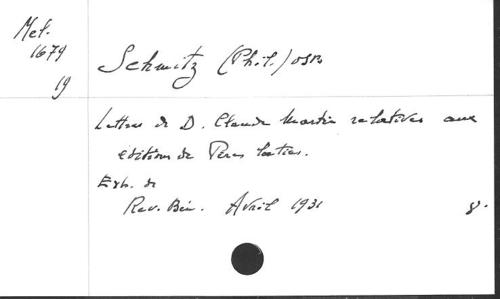 Mel.
1679
19
Schmitz (Phil.) OSB
Lettres de D. Claude Martin relatives aux
éditions de Pères latins.
Extr. de
Rev. Bén. Avril 1931
8.